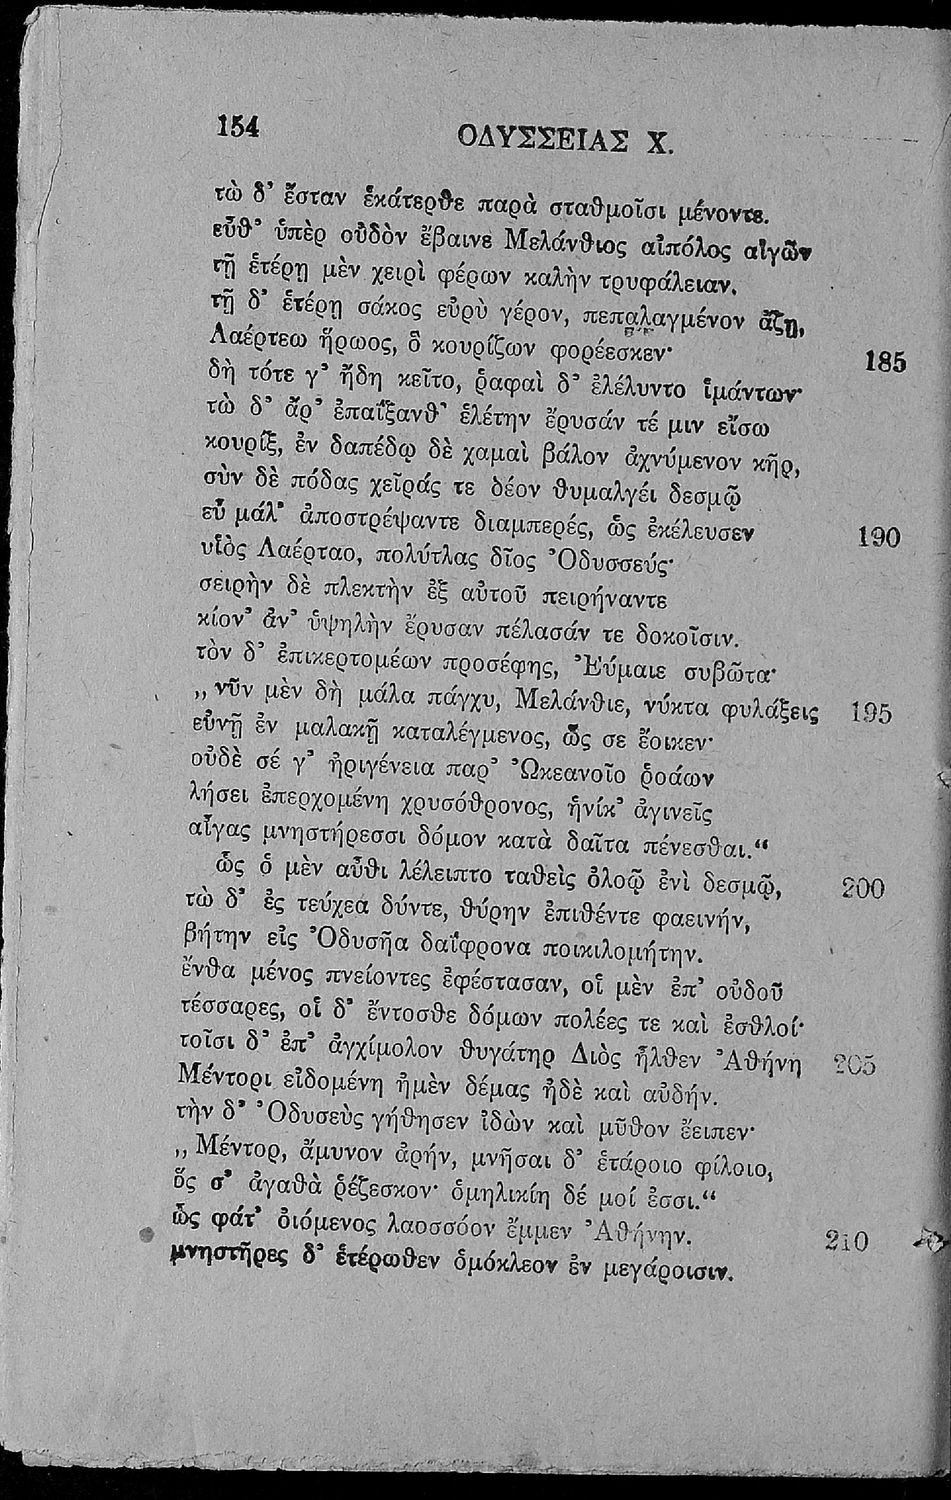 154
ΟΔΥΣΣΕΙΑΣ Χ.
τὼ δ’ ἔσταν ἑκάτερθε παρὰ σταθμοῖσι μένοντε.
εὖθ’ ὑπὲρ οὐδὸν ἔβαινε Μελάνθιος αἰπόλος αἰγῶν
τῇ ἑτέρῃ μὲν χειρὶ φέρων καλὴν τρυφάλειαν,
τῇ δ’ ἑτέρῃ σάκος εὐρὺ γέρον, πεπαλαγμένον ἄζῃ,
Λαέρτεω ἥρωος, ὃ κουρίζων φορέεσκεν· 185
δὴ τότε γ’ ἤδη κεῖτο, ῥαφαὶ δ’ ἐλέλυντο ἱμάντων·
τὼ δ’ ἄρ’ ἐπαΐξανθ’ ἑλέτην ἔρυσάν τέ μιν εἴσω
κουρίξ, ἐν δαπέδῳ δὲ χαμαὶ βάλον ἀχνύμενον κῆρ,
σὺν δὲ πόδας χεῖράς τε δέον θυμαλγέι δεσμῷ
εὖ μάλ’ ἀποστρέψαντε διαμπερές, ὡς ἐκέλευσεν 190
υἱὸς Λαέρταο, πολύτλας δῖος Ὀδυσσεύς·
σειρὴν δὲ πλεκτὴν ἐξ αὐτοῦ πειρήναντε
κίον’ ἀν’ ὑψηλὴν ἔρυσαν πέλασάν τε δοκοῖσιν.
τὸν δ’ ἐπικερτομέων προσέφης, Εὔμαιε συβῶτα·
„νῦν μὲν δὴ μάλα πάγχυ, Μελάνθιε, νύκτα φυλάξεις 195
εὐνῇ ἐν μαλακῇ καταλέγμενος, ὥς σε ἔοικεν·
οὐδὲ σέ γ’ ἠριγένεια παρ’ Ὠκεανοῖο ῥοάων
λήσει ἐπερχομένη χρυσόθρονος, ἡνίκ’ ἀγινεῖς
αἶγας μνηστήρεσσι δόμον κατὰ δαῖτα πένεσθαι.“
ὣς ὁ μὲν αὖθι λέλειπτο ταθεὶς ὀλοῷ ἐνὶ δεσμῷ, 200
τὼ δ’ ἐς τεύχεα δύντε, θύρην ἐπιθέντε φαεινήν,
βήτην εἰς Ὀδυσῆα δαΐφρονα ποικιλομήτην.
ἔνθα μένος πνείοντες ἐφέστασαν, οἱ μὲν ἐπ’ οὐδοῦ
τέσσαρες, οἱ δ’ ἔντοσθε δόμων πολέες τε καὶ ἐσθλοί·
τοῖσι δ’ ἐπ’ ἀγχίμολον θυγάτηρ Διὸς ἦλθεν Ἀθήνη 205
Μέντορι εἰδομένη ἠμὲν δέμας ἠδὲ καὶ αὐδήν.
τὴν δ’ Ὀδυσεὺς γήθησεν ἰδὼν καὶ μῦθον ἔειπεν·
„Μέντορ, ἄμυνον ἀρήν, μνῆσαι δ’ ἑτάροιο φίλοιο,
ὅς σ’ ἀγαθὰ ῥέζεσκον· ὁμηλικίη δέ μοί ἐσσι.“
ὣς φάτ’ ὀιόμενος λαοσσόον ἔμμεν Ἀθήνην. 210
μνηστῆρες δ’ ἑτέρωθεν ὁμόκλεον ἐν μεγάροισιν.